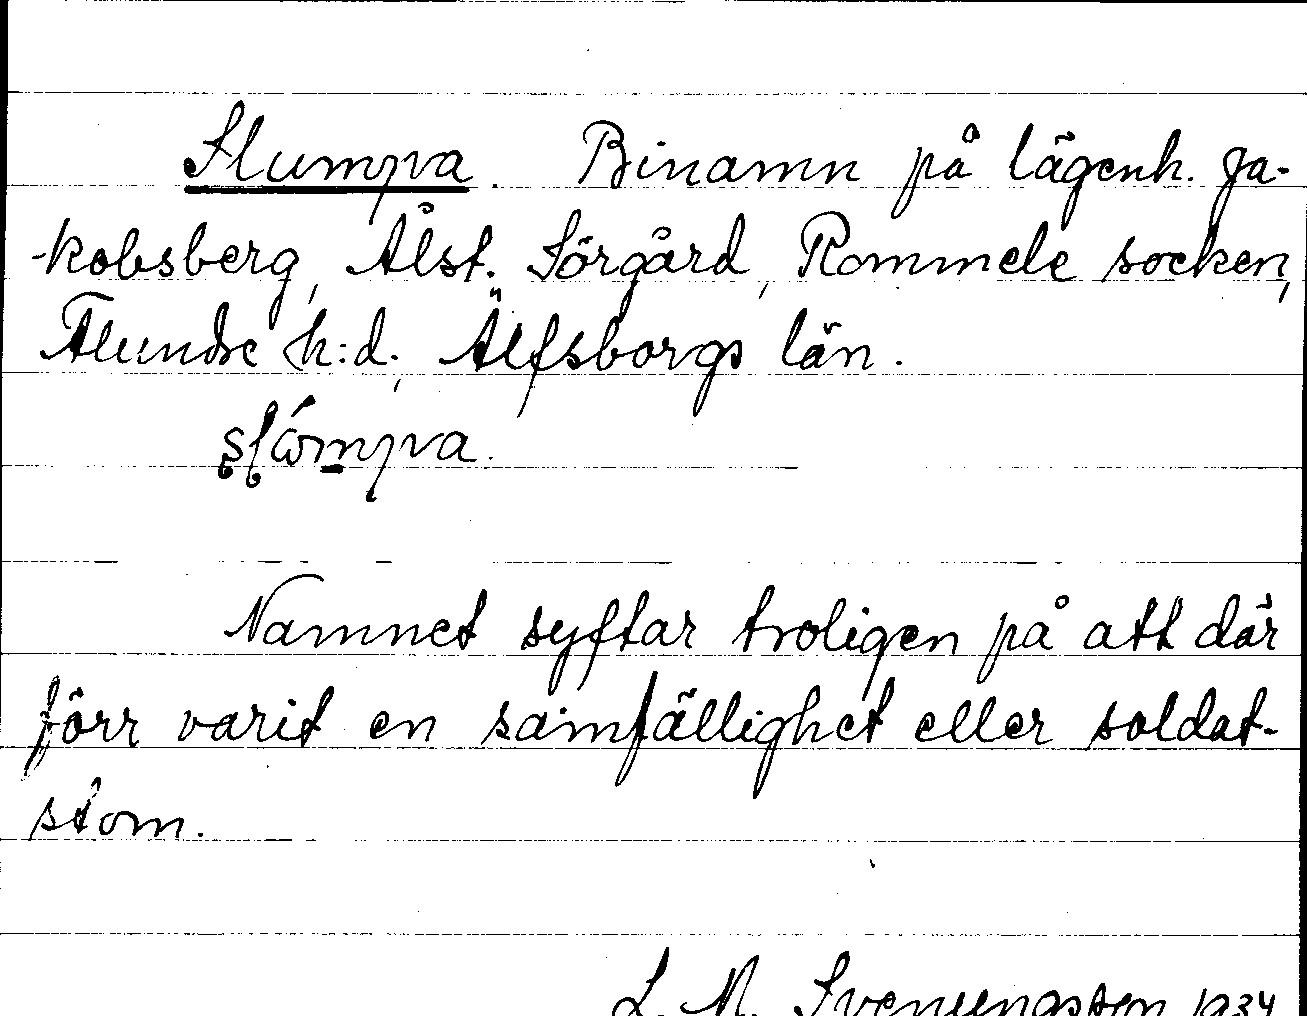 Slumpva. Binamn på lägenh. Ja-
kobsberg, Ålst. Sörgård, Rommele socken,
Flundre h:d., Älfsborgs län.
Namnet syftar troligen på att där
förr varit en samfällighet eller soldat-
stom.
L. M. Svenungsson 1934